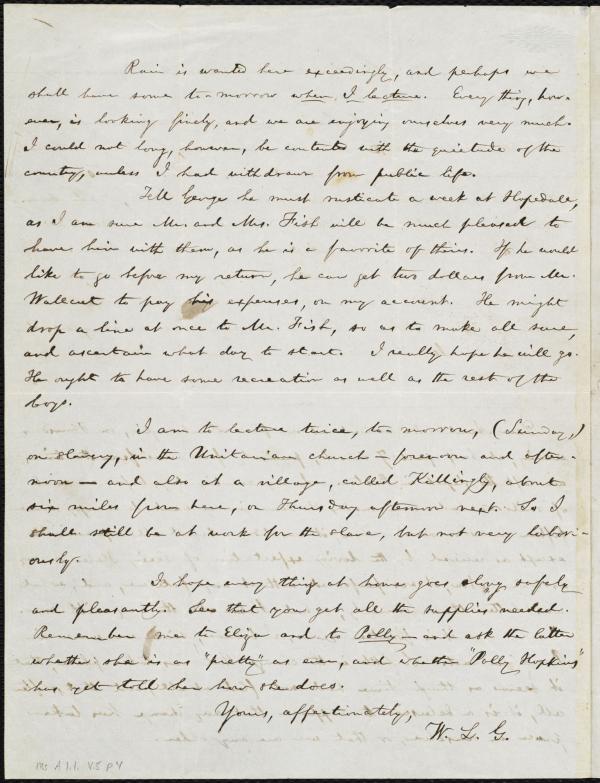 Rain is wanted here exceedingly, and perhaps we
shall have some to-morrow when I lecture. Every thing, how-
ever, is looking finely, and we are enjoying ourselves very much.
I could not long, however, be content with the quietude of the
country, unless I had withdrawn from public life.
Tell George he must rusticate a week at Hopedale,
as I am sure Mr. and Mrs. Fish will be much pleased to
have him with them, as he is a favorite of theirs. If he would
like to go before my return, he can get two dollars from Mr.
Wallcut to pay his expenses, on my account. He might
drop a line at once to Mr. Fish, so as to make all sure,
and ascertain what day to start. I really hope he will go.
He ought to have some recreation as well as the rest of the
boys.
I am to lecture twice, to-morrow, (Sunday,)
on slavery, in the Unitarian church — forenoon and after-
noon — and also at a village, called Killingly, about
six miles from here, on Thursday afternoon next. So I
shall still be at work for the slave, but not very labori-
ously.
I hope every thing at home goes along safely
and pleasantly. See that you get all the supplies needed.
Remember me to Eliza and to Polly — and ask the latter
whether she is as "pretty" as ever, and whether "Polly Hopkins"
has yet told her how she does.
Yours, affectionately,
W. L. G.
Ms A 1.1 V.5 p 4